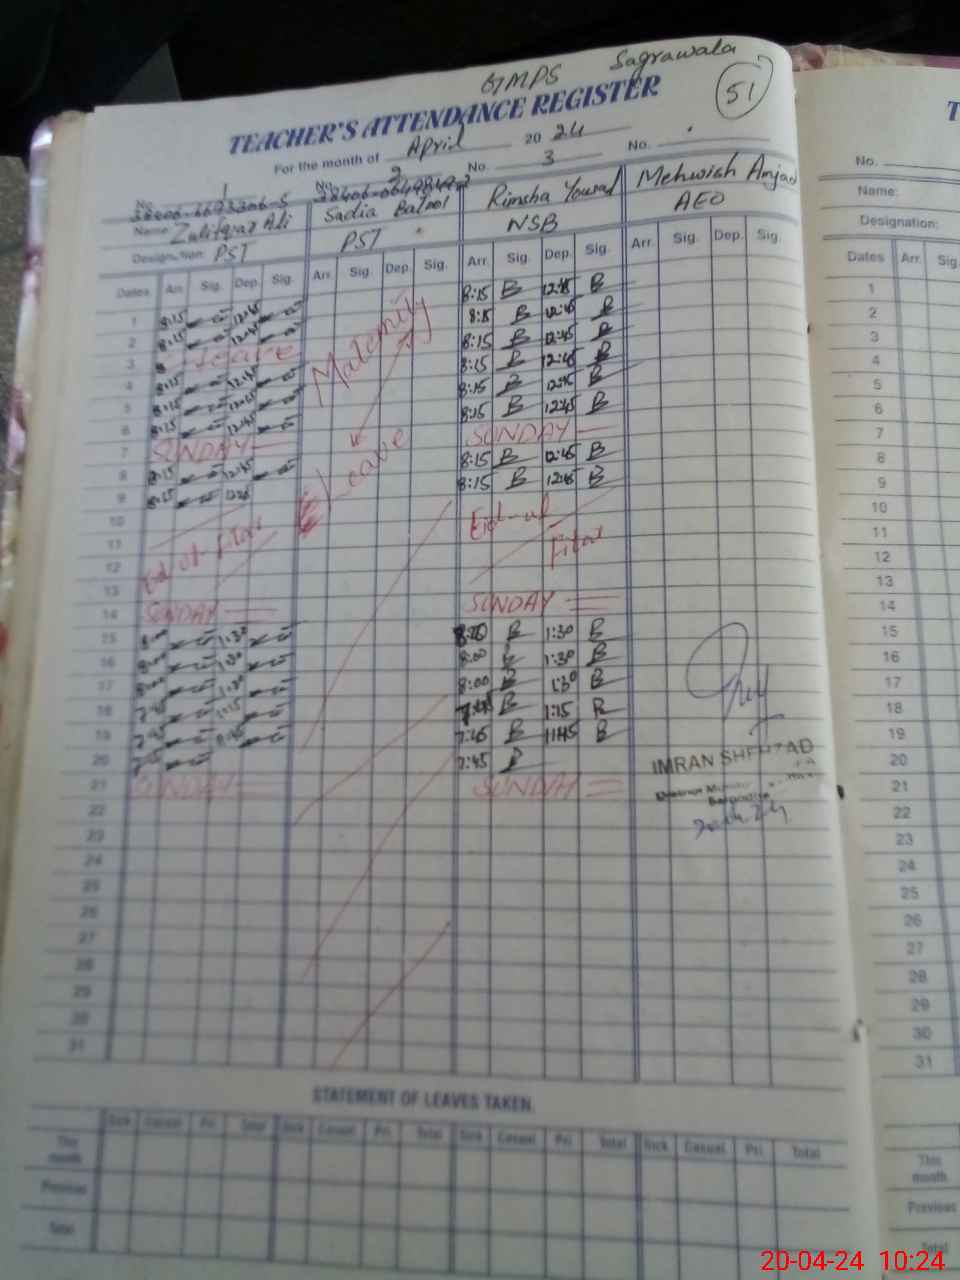 GMPS Sagrawala
51
TEACHER'S ATTENDANCE REGISTER
For the month of April 20 24
No. 1 No. 2 No. 3 No.
Name: Zulifqar Ali Sadia Batool Rimsha Yousaf Mehwish Amjad
Designation: PST PST NSB AEO
Dates Arr. Sig. Dep. Sig. Arr. Sig. Dep. Sig. Arr. Sig. Dep. Sig. Arr. Sig. Dep. Sig.
1 8:15 12:45 8:15 B 12:45 B
2 8:15 12:45 8:15 B 12:45 B
3 Leave 8:15 B 12:45 B
4 8:15 12:45 8:15 B 12:45 B
5 8:15 12:45 8:15 B 12:45 B
6 8:15 12:45 8:15 B 12:45 B
7 SUNDAY SUNDAY
8 8:15 12:45 8:15 B 12:45 B
9 8:15 12:45 8:15 B 12:45 B
Maternity
Leave
10
11
12
13
Eid ul Fitar Eid-ul Fitar
14 SUNDAY SUNDAY
15 8:00 1:30 B 1:30 B
16 8:00 1:30 8:00 B 1:30 B
17 8:00 1:30 8:00 B 1:30 B
18 7:45 1:15 B 1:15 B
19 7:45 11:45 7:45 B 11:45 B
20 7:45 7:45 B
21 SUNDAY SUNDAY
IMRAN SHEHZAD
22
23
24
25
26
27
28
29
30
31
STATEMENT OF LEAVES TAKEN.
Sick Casual Pri. Total Sick Casual Pri. Total Sick Casual Pri. Total Sick Casual Pri. Total
This month
Previous
Total
T
No.
Name:
Designation:
Dates Arr. Sig.
1
2
3
4
5
6
7
8
9
10
11
12
13
14
15
16
17
18
19
20
21
22
23
24
25
26
27
28
29
30
31
This month
Previous
Total
20-04-24 10:24